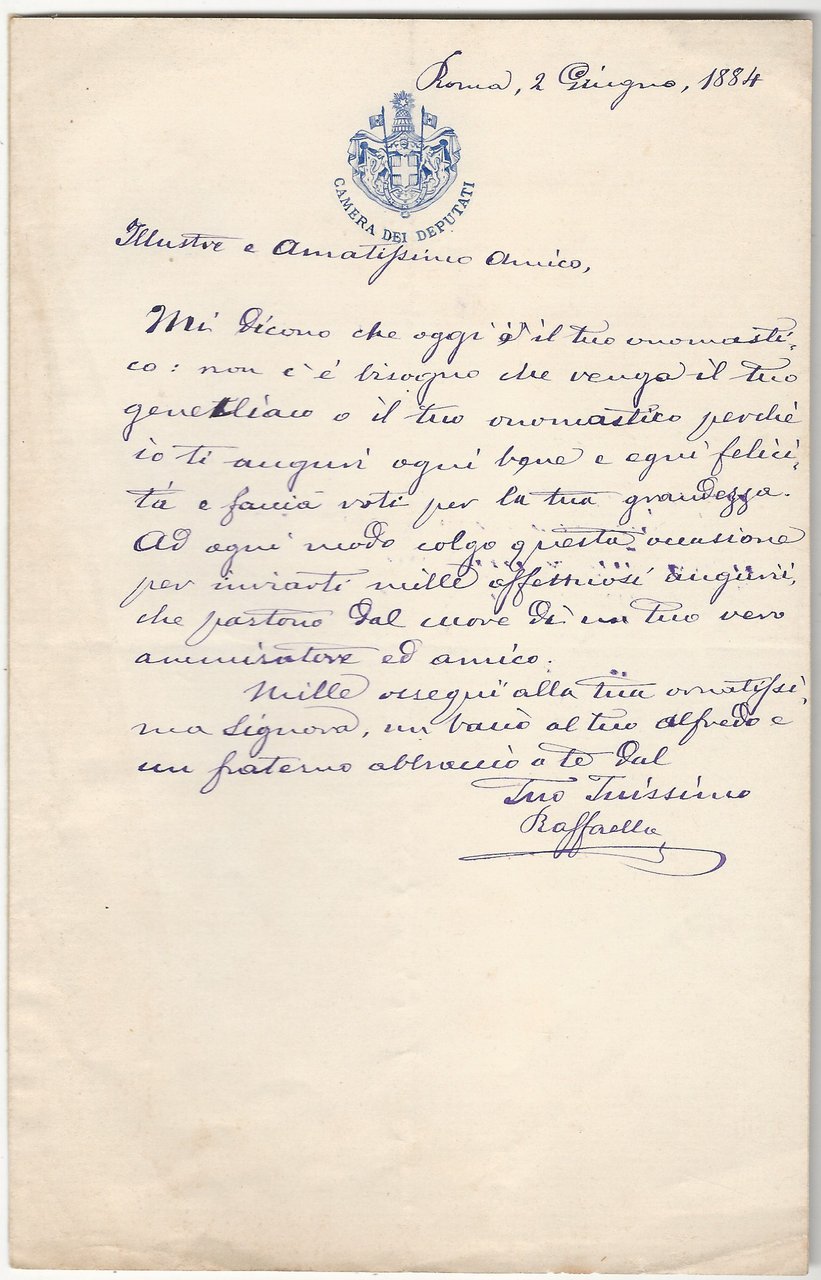 Roma, 2 Giugno, 1884
CAMERA DEI DEPUTATI
Illustre e Amatissimo Amico,
Mi dicono che oggi è il tuo onomasti-
co: non c'è bisogno che venga il tuo
genetliaco o il tuo onomastico perchè
io ti auguri ogni bene e ogni felici-
tà e faccia voti per la tua grandezza.
Ad ogni modo colgo questa occasione
per inviarti mille affettuosi auguri,
che partono dal cuore di un tuo vero
ammiratore ed amico.
Mille ossequi alla tua ornatissi-
ma Signora, un bacio al tuo Alfredo e
un fraterno abbraccio a te dal
Tuo Tuissimo
Raffaello